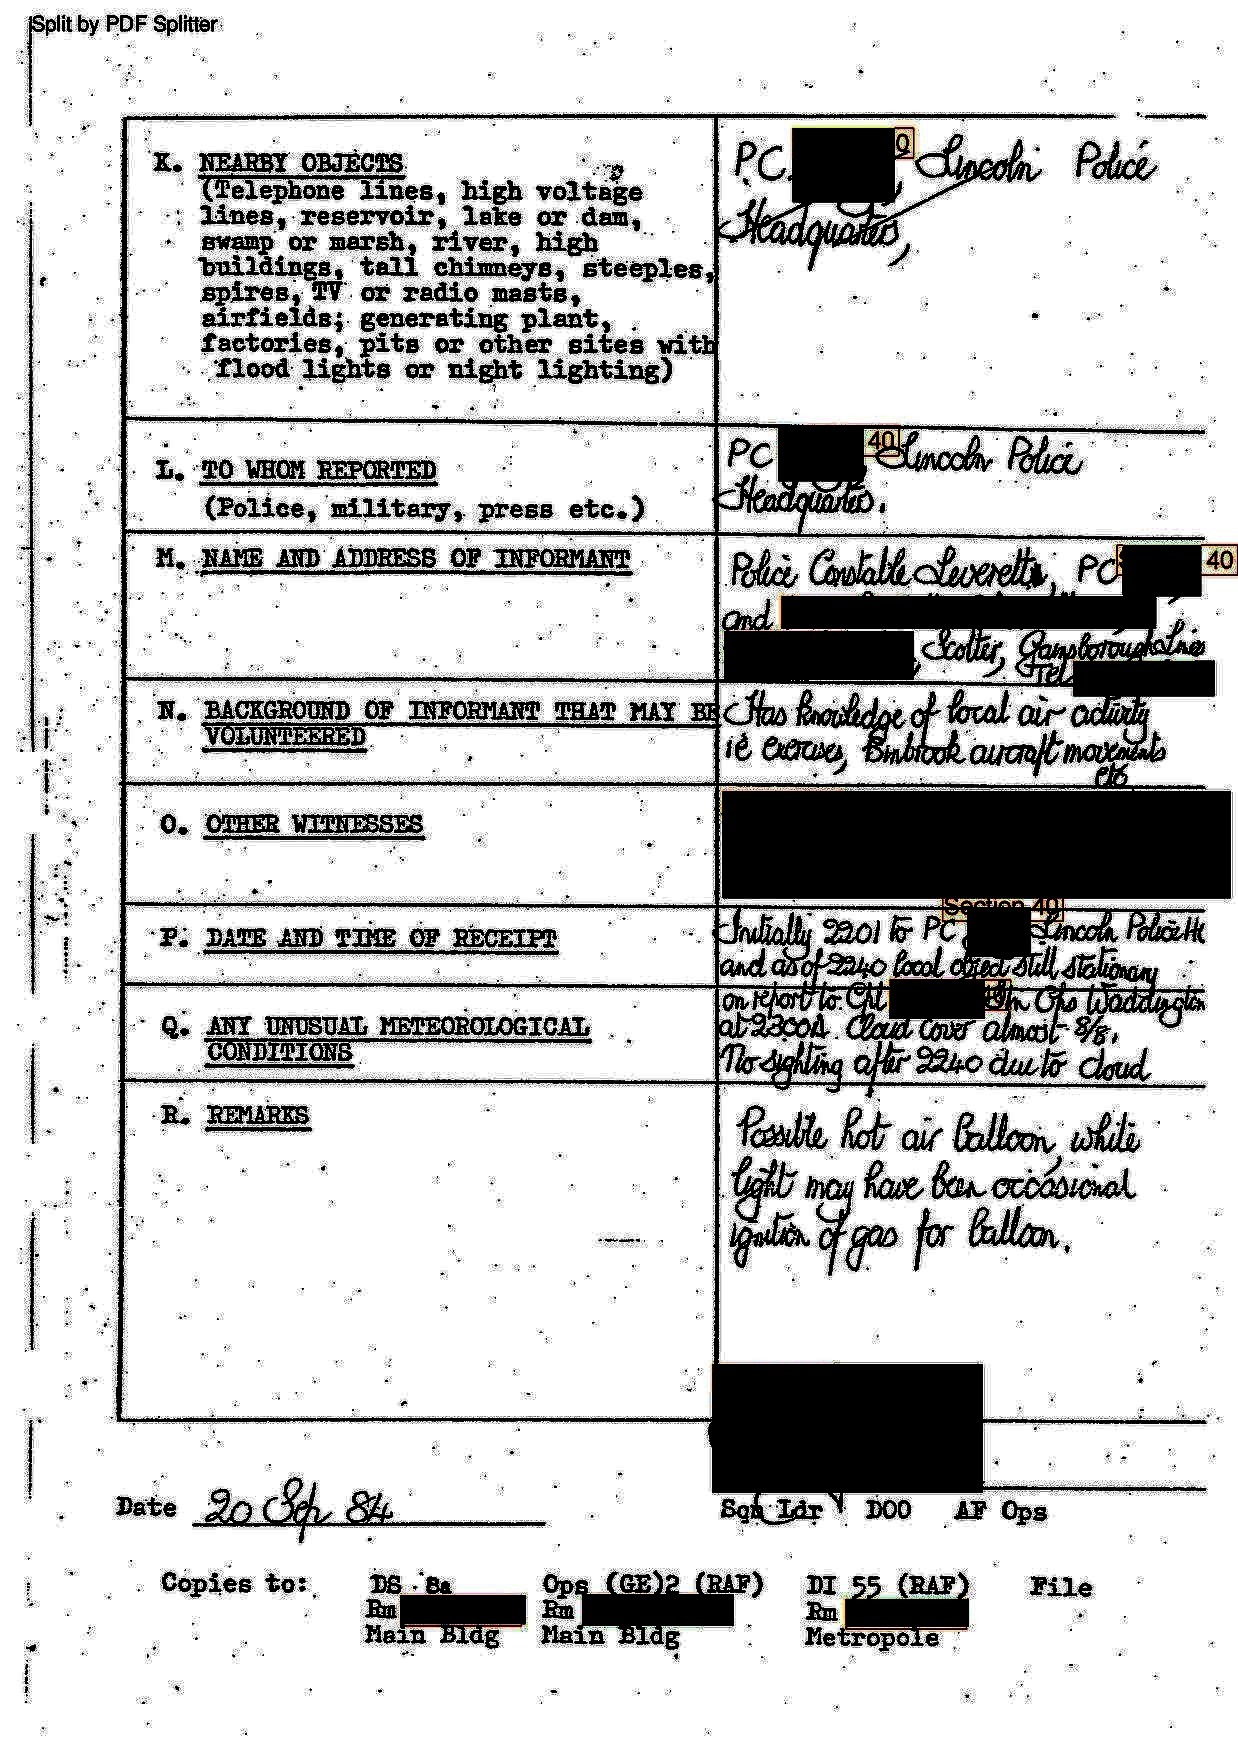 Split by PDF Splitter
K. NEARBY OBJECTS
(Telephone lines, high voltage
lines, reservoir, lake or dam,
swamp or marsh, river, high
buildings, tall chimneys, steeples,
spires, TV or radio masts,
airfields; generating plant,
factories, pits or other sites with
flood lights or night lighting)
PC 0 Lincoln Police
Headquarters,
L. TO WHOM REPORTED
(Police, military, press etc.)
PC 40 Lincoln Police
Headquarters.
M. NAME AND ADDRESS OF INFORMANT
Police Constable Leverett, PC 40
and
Scotter, Gainsborough Lincs
Tel
N. BACKGROUND OF INFORMANT THAT MAY BE
VOLUNTEERED
Has knowledge of local air activity
ie exercises, Binbrook aircraft movements
etc
O. OTHER WITNESSES
P. DATE AND TIME OF RECEIPT
Section 40
Initially 2201 to PC Lincoln Police H
and as of 2240 local object still stationary
Q. ANY UNUSUAL METEOROLOGICAL
CONDITIONS
on report to Cpl in Ops Waddington
at 2300A. Cloud cover almost 8/8.
No sighting after 2240 due to cloud
R. REMARKS
Possible hot air balloon, white
light may have been occasional
ignition of gas for balloon.
Date 20 Sep 84
Sqn Ldr DOO AF Ops
Copies to: DS 8a Ops (GE)2 (RAF) DI 55 (RAF) File
Rm Rm Rm
Main Bldg Main Bldg Metropole